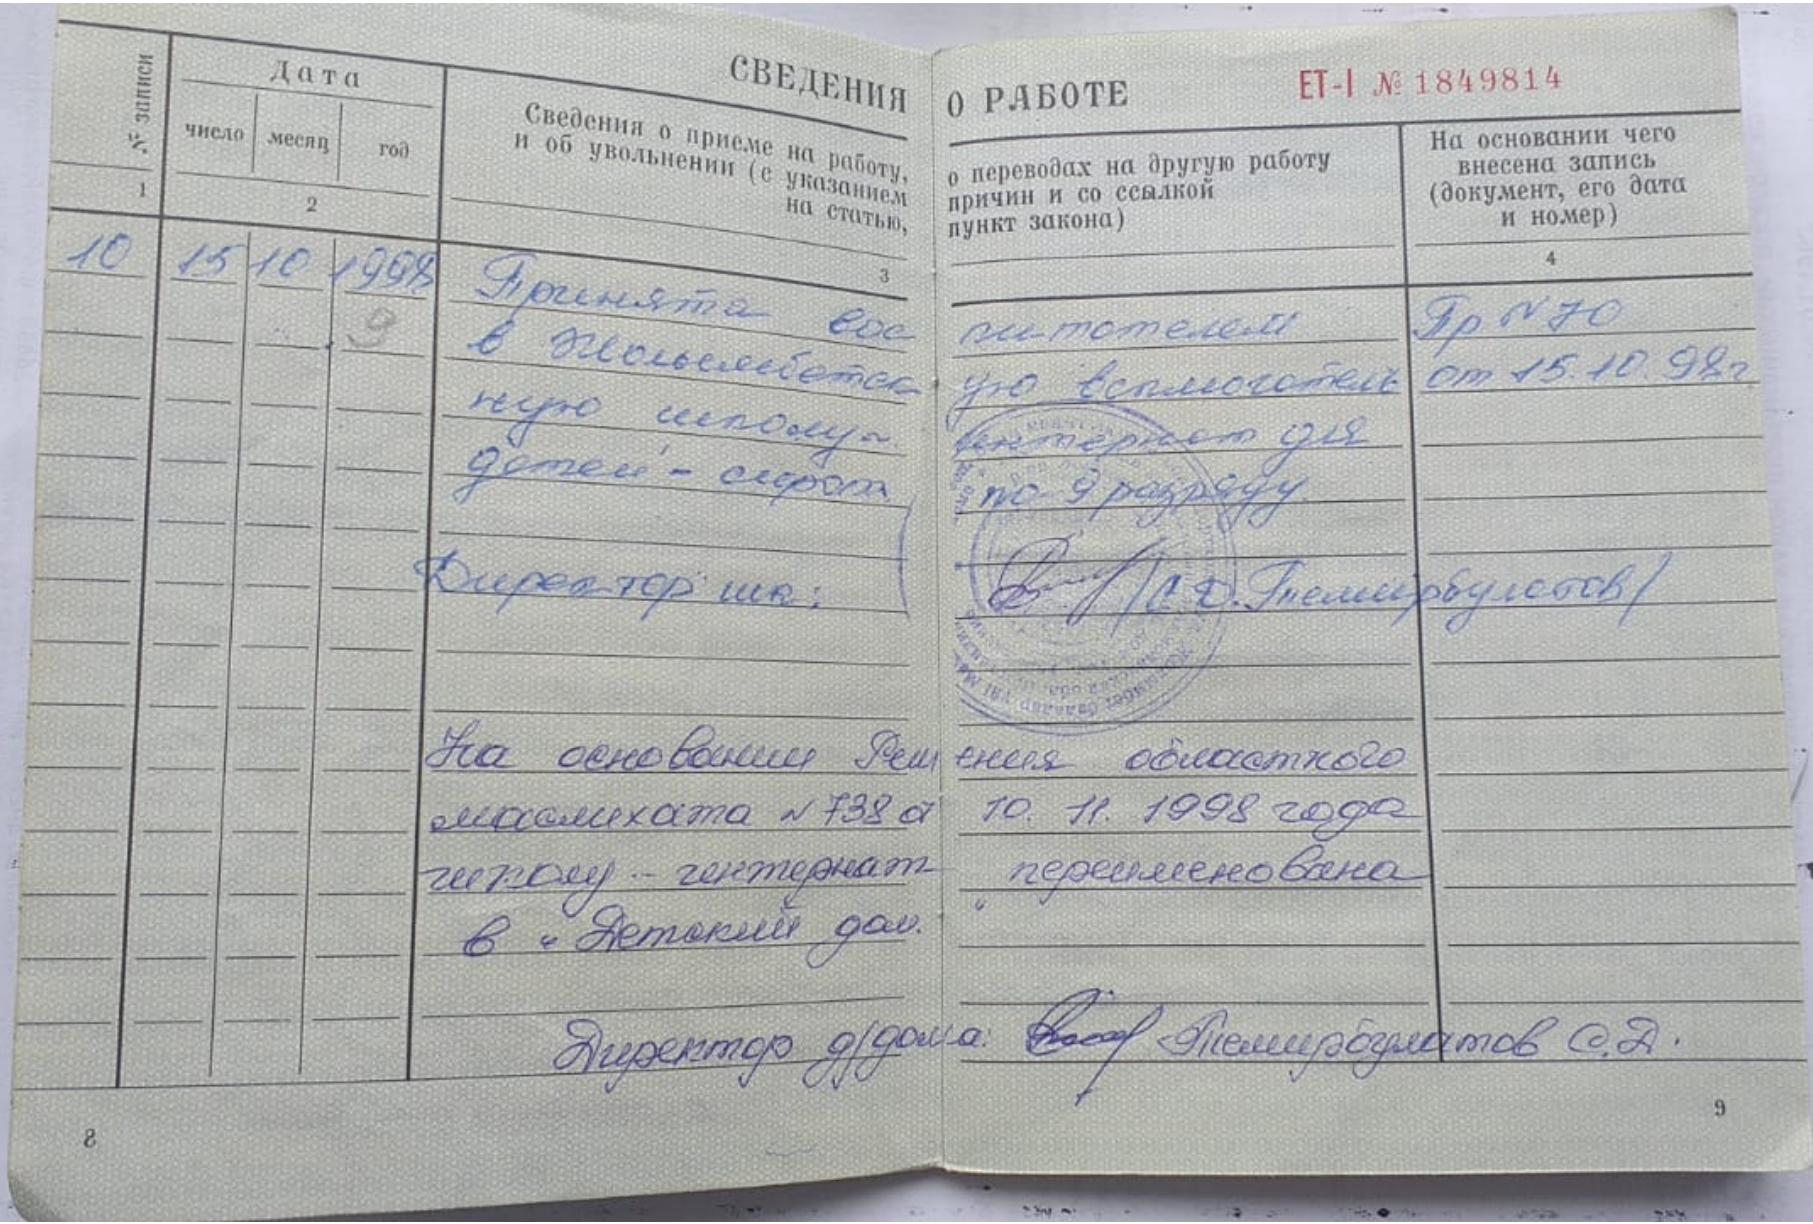 СВЕДЕНИЯ О РАБОТЕ
ЕТ-I № 1849814
№ записи
Дата
число месяц год
Сведения о приеме на работу, о переводах на другую работу
и об увольнении (с указанием причин и со ссылкой
на статью, пункт закона)
На основании чего
внесена запись
(документ, его дата
и номер)
1 2 3 4
10 15 10 1998 Принята вос питателем Пр №70
9 в Жолымбетск ую вспомогатель от 15.10.98г
ную школу- интернат для
детей - сирот по 9 разряду.
Директор шк: /С.Д. Темирбулатов/
На основании Реш ения областного
маслихата №738 от 10. 11. 1998 года
школу - интернат переименована
в "Детский дом."
Директор д/дома: Темирбулатов С.Д.
8 9